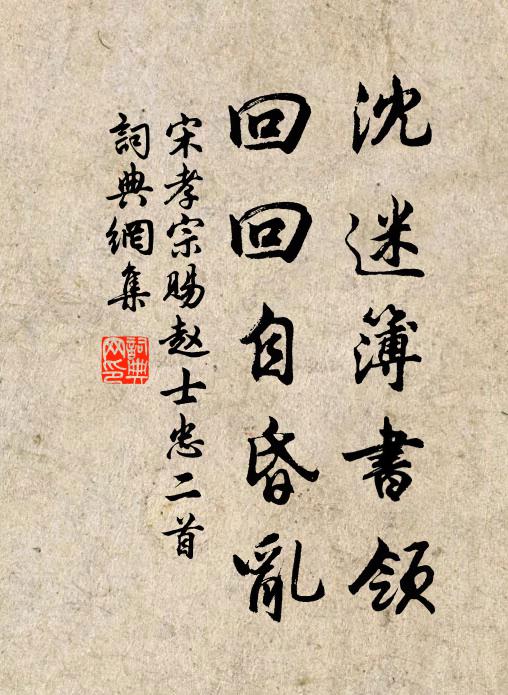 沈迷簿書領
回回自昏亂
宋孝宗賜赵士忠二首
詞典網集
詞典網印